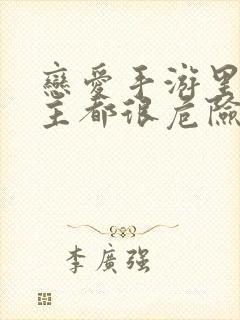 戀愛手游里
主都很危險
李廣强